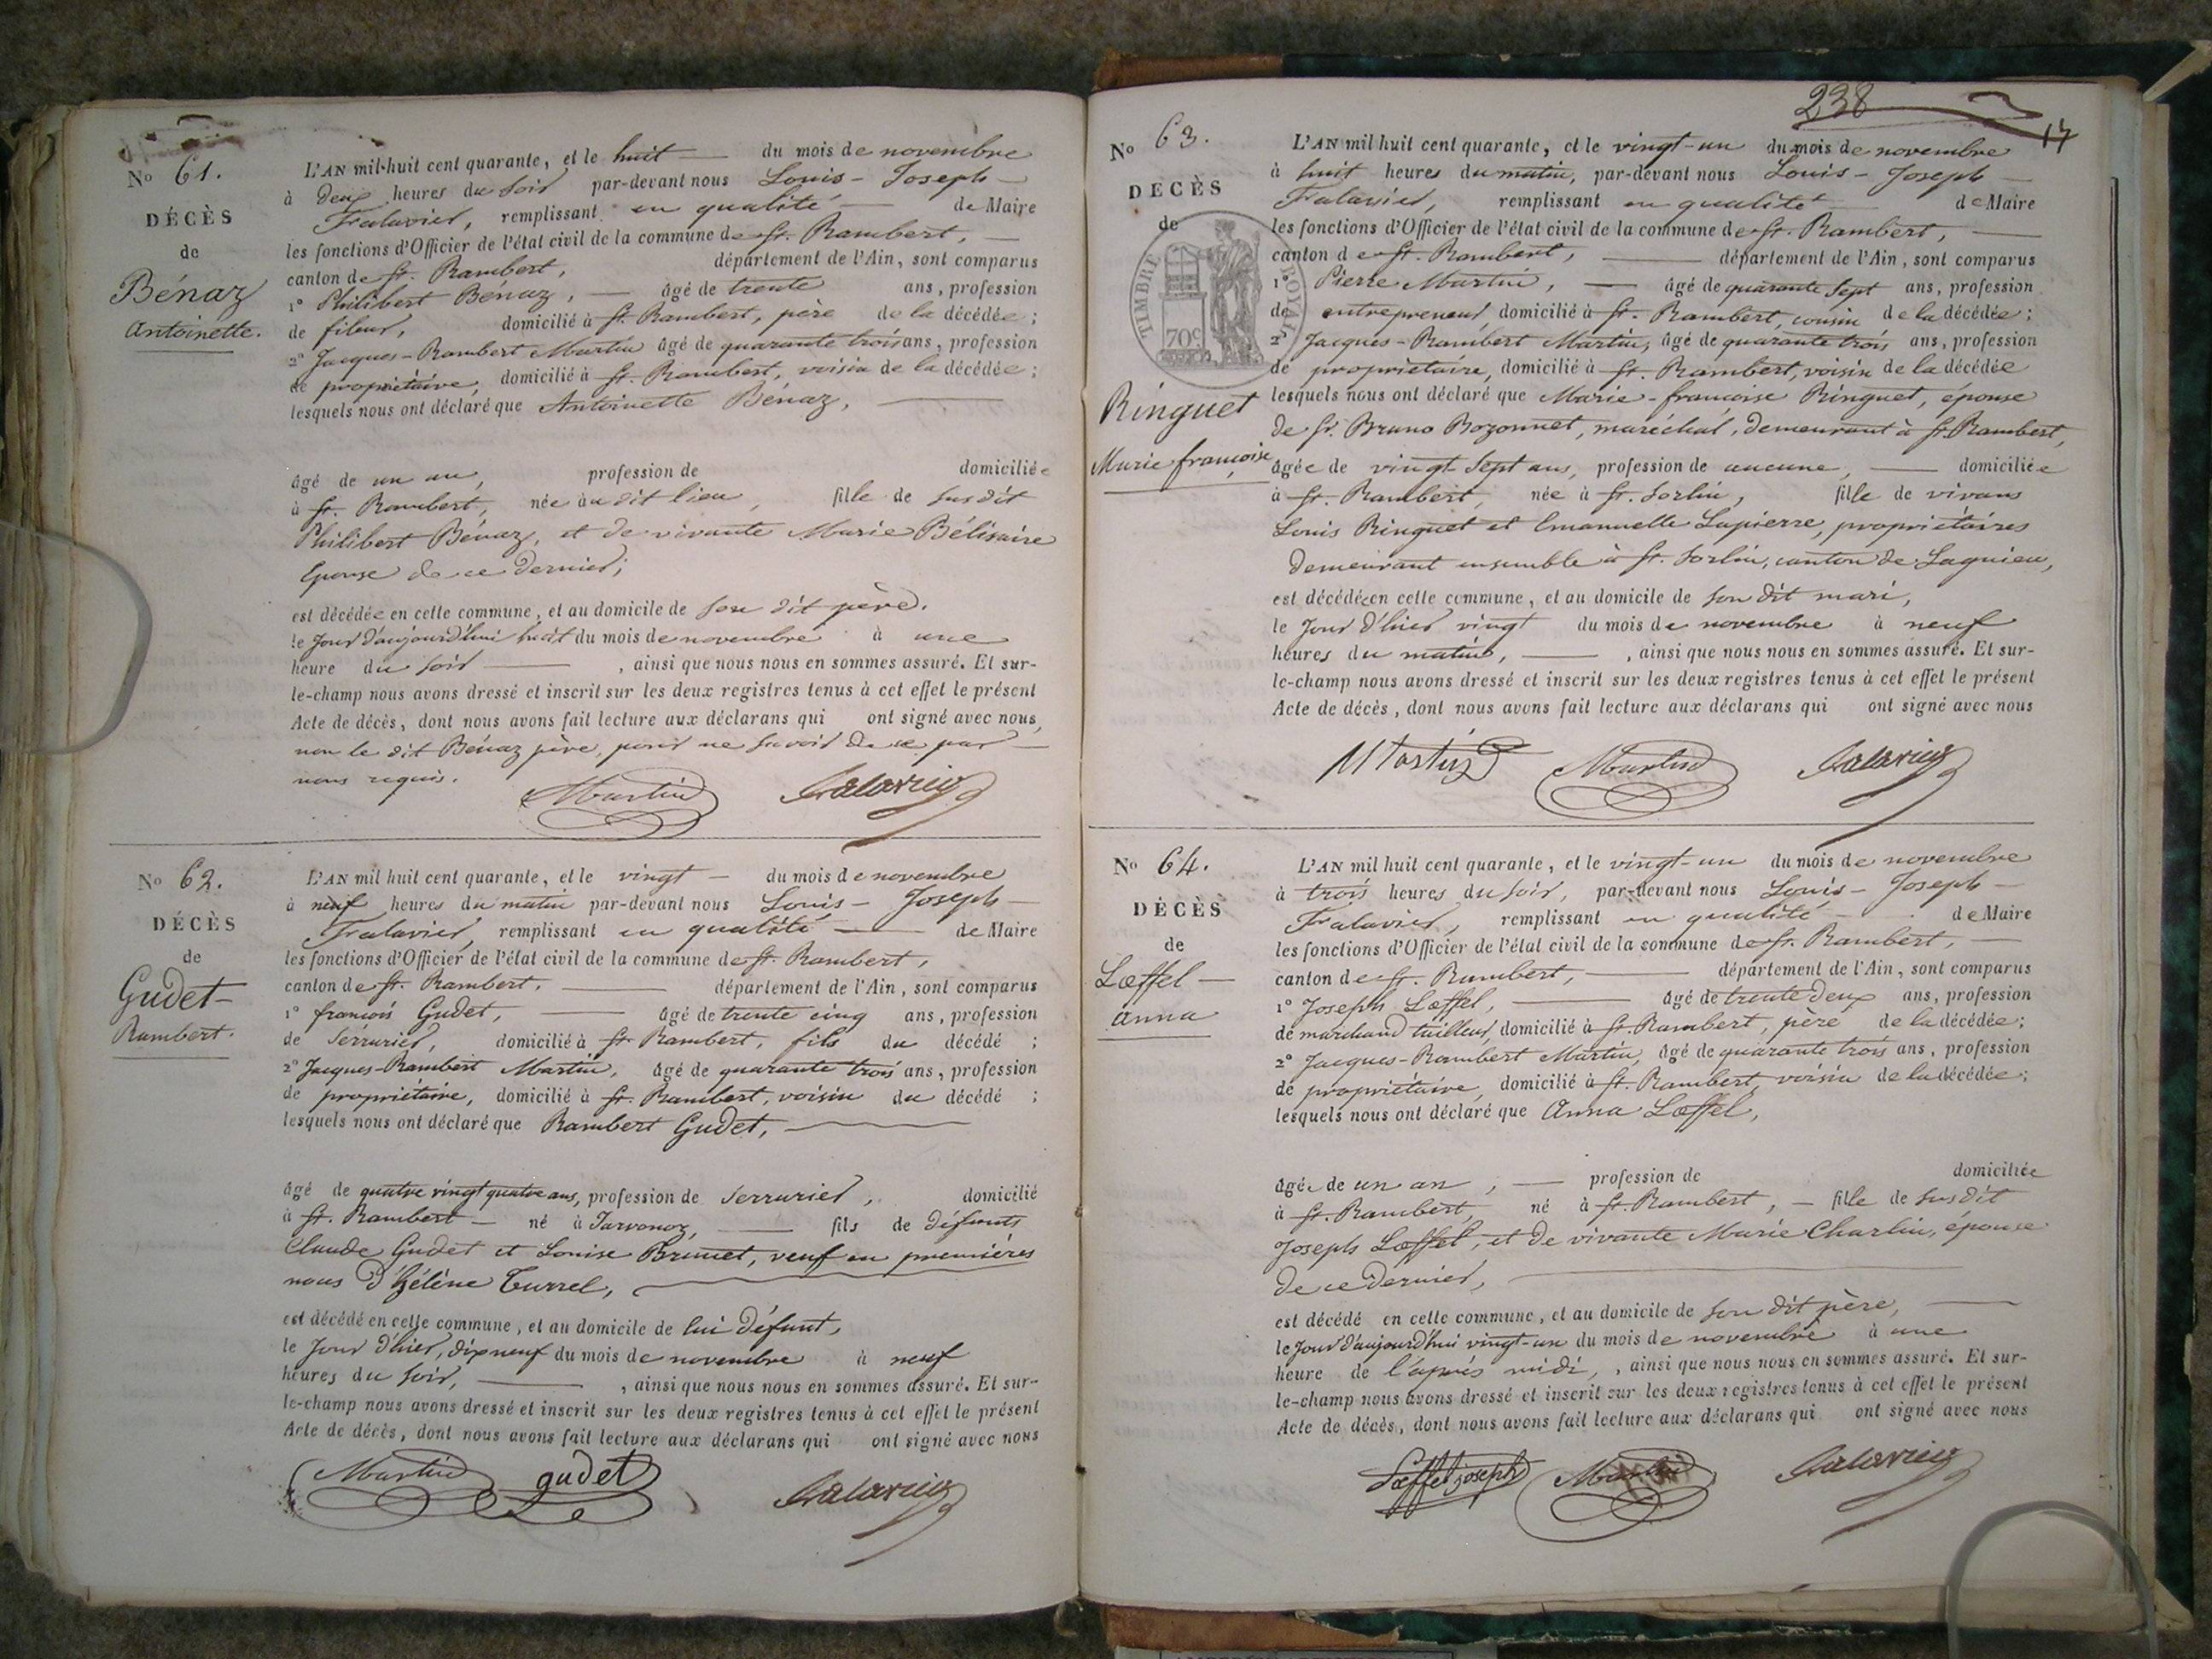 No 61.
DÉCÈS
de
Bénaz
Antoinette.
L'AN mil-huit cent quarante, et le huit du mois de novembre
à deux heures du soir par-devant nous Louis-Joseph
Falavier, remplissant en qualité de Maire
les fonctions d'Officier de l'état civil de la commune de St. Rambert,
canton de St. Rambert, département de l'Ain, sont comparus
1° Philibert Bénaz, âgé de trente ans, profession
de fileur, domicilié à St. Rambert, père de la décédée;
2° Jacques-Rambert Martin âgé de quarante trois ans, profession
de propriétaire, domicilié à St. Rambert, voisin de la décédée;
lesquels nous ont déclaré que Antoinette Bénaz,
âgé de un an, profession de domiciliée
à St. Rambert, née au dit lieu, fille de susdit
Philibert Bénaz, et de vivante Marie Bélisaire
Epouse de ce dernier;
est décédée en cette commune, et au domicile de son dit père.
le jour d'aujourd'hui huit du mois de novembre à une
heure du soir, ainsi que nous nous en sommes assuré. Et sur-
le-champ nous avons dressé et inscrit sur les deux registres tenus à cet effet le présent
Acte de décès, dont nous avons fait lecture aux déclarans qui ont signé avec nous,
non le dit Bénaz père, pour ne savoir de ce par
nous requis.
Martin Falavier
No 62.
DÉCÈS
de
Gudet
Rambert.
L'AN mil huit cent quarante, et le vingt du mois de novembre
à neuf heures du matin par-devant nous Louis-Joseph
Falavier, remplissant en qualité de Maire
les fonctions d'Officier de l'état civil de la commune de St. Rambert,
canton de St. Rambert, département de l'Ain, sont comparus
1° françois Gudet, âgé de trente cinq ans, profession
de Serrurier, domicilié à St. Rambert, fils du décédé;
2° Jacques-Rambert Martin, âgé de quarante trois ans, profession
de propriétaire, domicilié à St. Rambert, voisin du décédé;
lesquels nous ont déclaré que Rambert Gudet,
âgé de quatre vingt quatre ans, profession de Serrurier, domicilié
à St. Rambert né à fils de défunts
Claude Gudet et Louise Brunet, veuf en premières
noces d'hélène Turrel,
est décédé en cette commune, et au domicile de lui défunt,
le jour d'hier, dix neuf du mois de novembre à neuf
heures du soir, ainsi que nous nous en sommes assuré. Et sur-
le-champ nous avons dressé et inscrit sur les deux registres tenus à cet effet le présent
Acte de décès, dont nous avons fait lecture aux déclarans qui ont signé avec nous
Martin gudet Falavier
238
17
No 63.
DÉCÈS
de
TIMBRE ROYAL
70c
Ringuet
Marie françoise
L'AN mil huit cent quarante, et le vingt-un du mois de novembre
à huit heures du matin, par-devant nous Louis-Joseph
Falavier, remplissant en qualité de Maire
les fonctions d'Officier de l'état civil de la commune de St. Rambert,
canton de St. Rambert, département de l'Ain, sont comparus
1° Pierre Martin, âgé de quarante sept ans, profession
de entrepreneur domicilié à St. Rambert, cousin de la décédée;
2° Jacques-Rambert Martin, âgé de quarante trois ans, profession
de propriétaire, domicilié à St. Rambert, voisin de la décédée
lesquels nous ont déclaré que Marie-françoise Ringuet, épouse
de Sr. Bruno Bozonnet, maréchal, demeurant à St. Rambert,
âgée de vingt sept ans, profession de aucune, domiciliée
à St. Rambert, née à St. Sorlin, fille de vivans
Louis Ringuet et Emanuelle Lapierre, propriétaires
demeurant ensemble à St. Sorlin, canton de Lagnieu,
est décédée en cette commune, et au domicile de son dit mari,
le jour d'hier vingt du mois de novembre à neuf
heures du matin, ainsi que nous nous en sommes assuré. Et sur-
le-champ nous avons dressé et inscrit sur les deux registres tenus à cet effet le présent
Acte de décès, dont nous avons fait lecture aux déclarans qui ont signé avec nous
Martin Martin Falavier
No 64.
DÉCÈS
de
Lœffel
Anna
L'AN mil huit cent quarante, et le vingt-un du mois de novembre
à trois heures du soir, par-devant nous Louis-Joseph
Falavier, remplissant en qualité de Maire
les fonctions d'Officier de l'état civil de la commune de St. Rambert,
canton de St. Rambert, département de l'Ain, sont comparus
1° Joseph Lœffel, âgé de trente deux ans, profession
de marchand tailleur, domicilié à St. Rambert, père de la décédée;
2° Jacques-Rambert Martin, âgé de quarante trois ans, profession
de propriétaire, domicilié à St. Rambert, voisin de la décédée;
lesquels nous ont déclaré que Anna Lœffel,
âgée de un an, profession de domiciliée
à St. Rambert, né à St. Rambert, fille de susdit
Joseph Lœffel, et de vivante Marie Charlin, épouse
de ce dernier,
est décédé en cette commune, et au domicile de son dit père,
le jour d'aujourd'hui vingt-un du mois de novembre à une
heure de l'après midi, ainsi que nous nous en sommes assuré. Et sur-
le-champ nous avons dressé et inscrit sur les deux registres tenus à cet effet le présent
Acte de décès, dont nous avons fait lecture aux déclarans qui ont signé avec nous
Lœffel joseph Martin Falavier